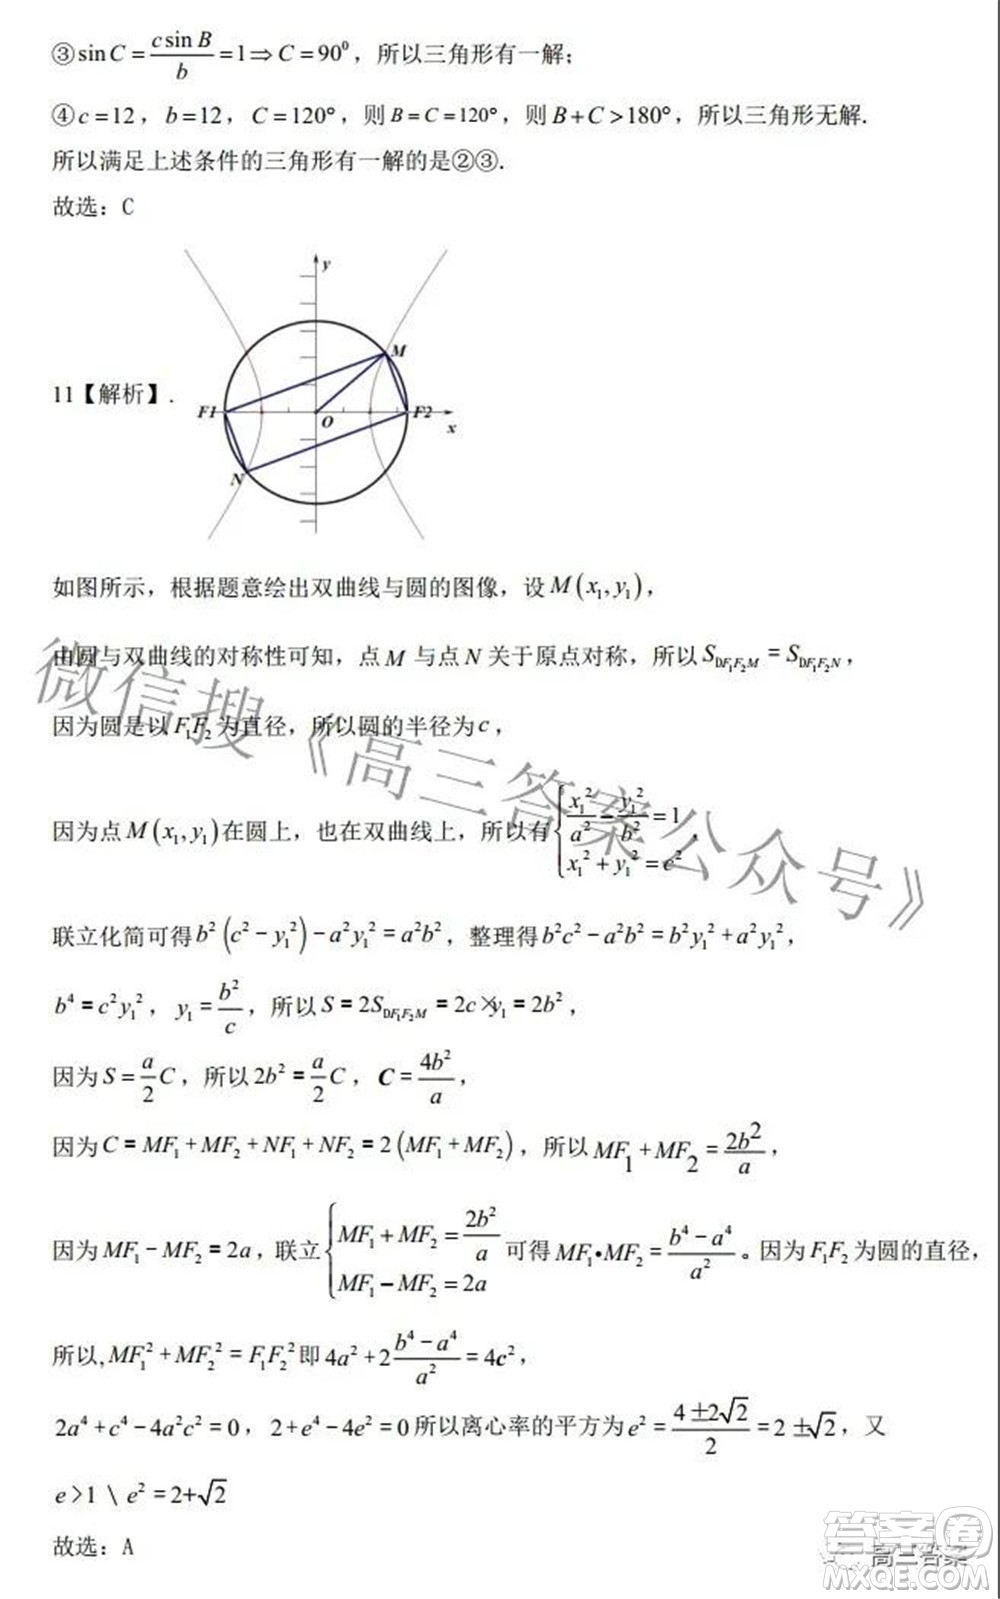 ③sin C = \frac{c sin B}{b} = 1 ⇒ C = 90⁰，所以三角形有一解；
④c = 12，b = 12，C = 120°，则 B = C = 120°，则 B + C > 180°，所以三角形无解.
所以满足上述条件的三角形有一解的是②③.
故选：C
y
M
11【解析】.
F1
F2
O
x
N
如图所示，根据题意绘出双曲线与圆的图像，设 M(x₁, y₁)，
由圆与双曲线的对称性可知，点 M 与点 N 关于原点对称，所以 S_{DF₁F₂M} = S_{DF₁F₂N}，
因为圆是以 F₁F₂ 为直径，所以圆的半径为 c，
因为点 M(x₁, y₁) 在圆上，也在双曲线上，所以有 \begin{cases} \frac{x₁²}{a²} - \frac{y₁²}{b²} = 1 \\ x₁² + y₁² = c² \end{cases}，
联立化简可得 b²(c² - y₁²) - a²y₁² = a²b²，整理得 b²c² - a²b² = b²y₁² + a²y₁²，
b⁴ = c²y₁²，y₁ = \frac{b²}{c}，所以 S = 2S_{DF₁F₂M} = 2c × y₁ = 2b²，
因为 S = \frac{a}{2}C，所以 2b² = \frac{a}{2}C，C = \frac{4b²}{a}，
因为 C = MF₁ + MF₂ + NF₁ + NF₂ = 2(MF₁ + MF₂)，所以 MF₁ + MF₂ = \frac{2b²}{a}，
因为 MF₁ - MF₂ = 2a，联立 \begin{cases} MF₁ + MF₂ = \frac{2b²}{a} \\ MF₁ - MF₂ = 2a \end{cases} 可得 MF₁•MF₂ = \frac{b⁴ - a⁴}{a²}。因为 F₁F₂ 为圆的直径，
所以, MF₁² + MF₂² = F₁F₂² 即 4a² + 2\frac{b⁴ - a⁴}{a²} = 4c²，
2a⁴ + c⁴ - 4a²c² = 0，2 + e⁴ - 4e² = 0 所以离心率的平方为 e² = \frac{4 ± 2√2}{2} = 2 ± √2，又
e > 1 \ e² = 2 + √2
故选：A
微信搜《高三答案公众号》
高三答案
答案圈
MXQE.COM